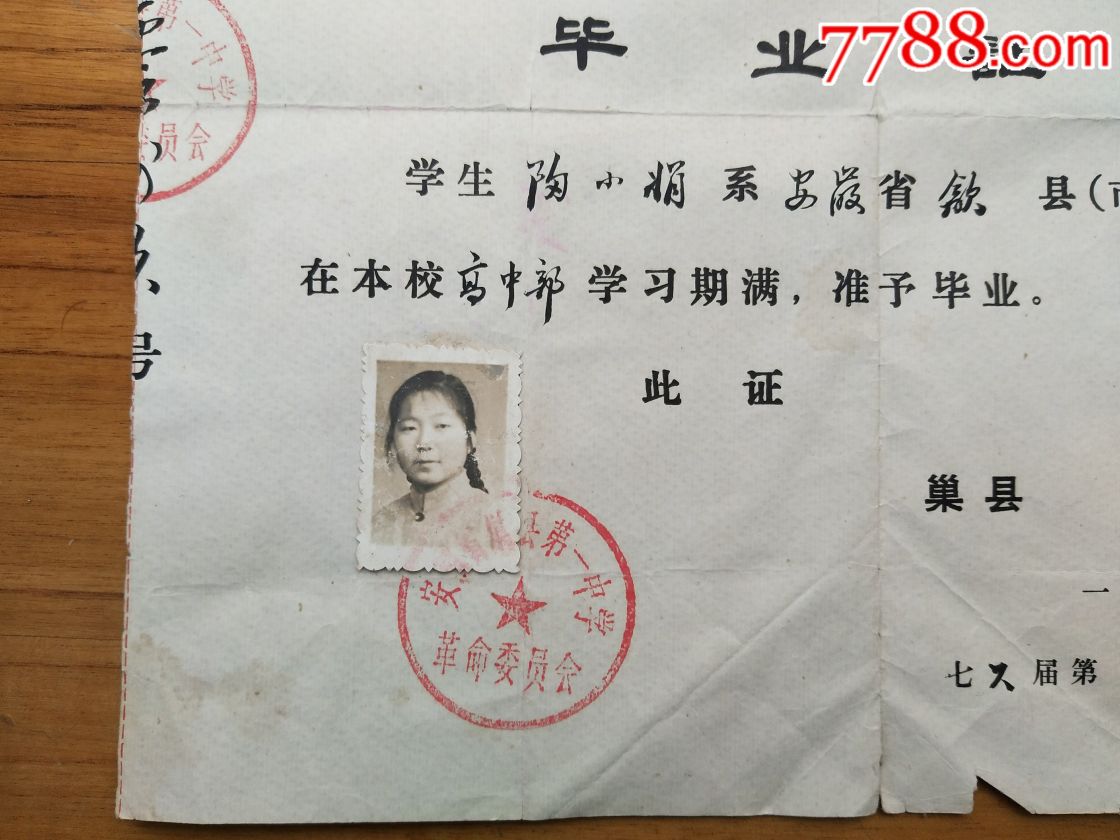 7788.com
毕业证
学生 陶小娟 系 安徽省 歙 县(市
在本校高中部学习期满，准予毕业。
此证
巢县
一
七 届第
第一中学
委员会
号
安 县第一中学
革命委员会